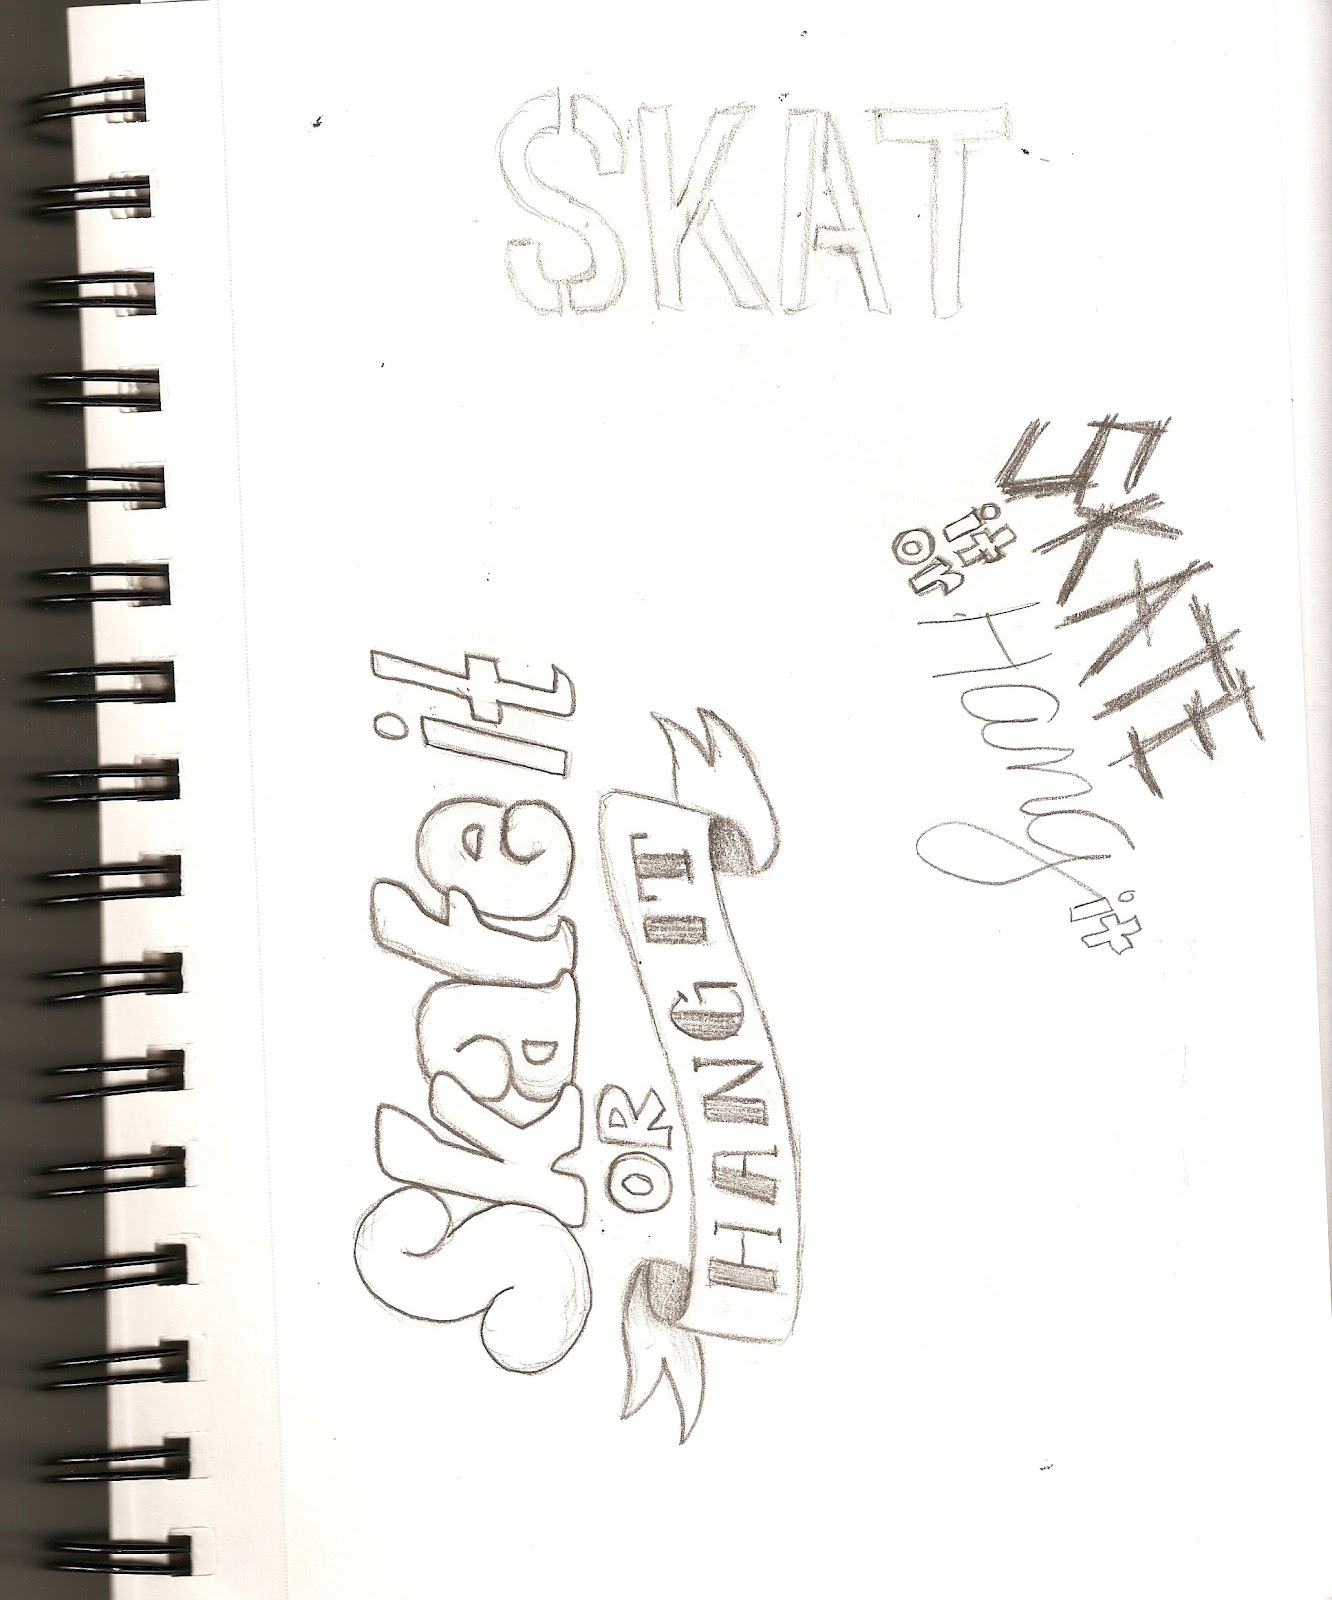 SKAT
SKATE
it
or
Hang
it
Skate it
OR
HANG IT